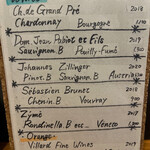 Ch. de Grand Pré 2018
Chardonnay Bourgogne
Dom Jean Pabiot et Fils 2017
Sauvignon.B Pouilly-Fumé
Johannes Zillinger 2020
Pinot.B Sauvignon.B
Sébastien Brunet 2018
Chenin.B Vouvray
Zÿmē
Rondinella.B etc... Veneto
Orange
Villard Fine Wines 2021